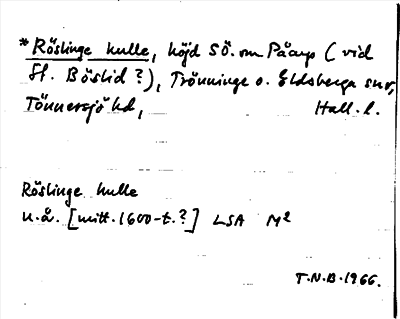 *Röslinge kulle, höjd SÖ. om Påarp (vid
St. Böslid?), Trönninge o. Eldsberga snr,
Tönnersjö hd, Hall. l.
Röslinge kulle
u.å. [mitt. 1600-t.?] LSA M2
T.N.B. 1966.